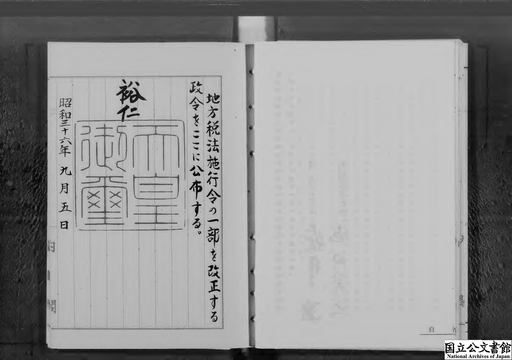 地方税法施行令の一部を改正する
政令をここに公布する。
裕仁
天皇
御璽
昭和三十六年九月五日
内閣
国立公文書館
National Archives of Japan